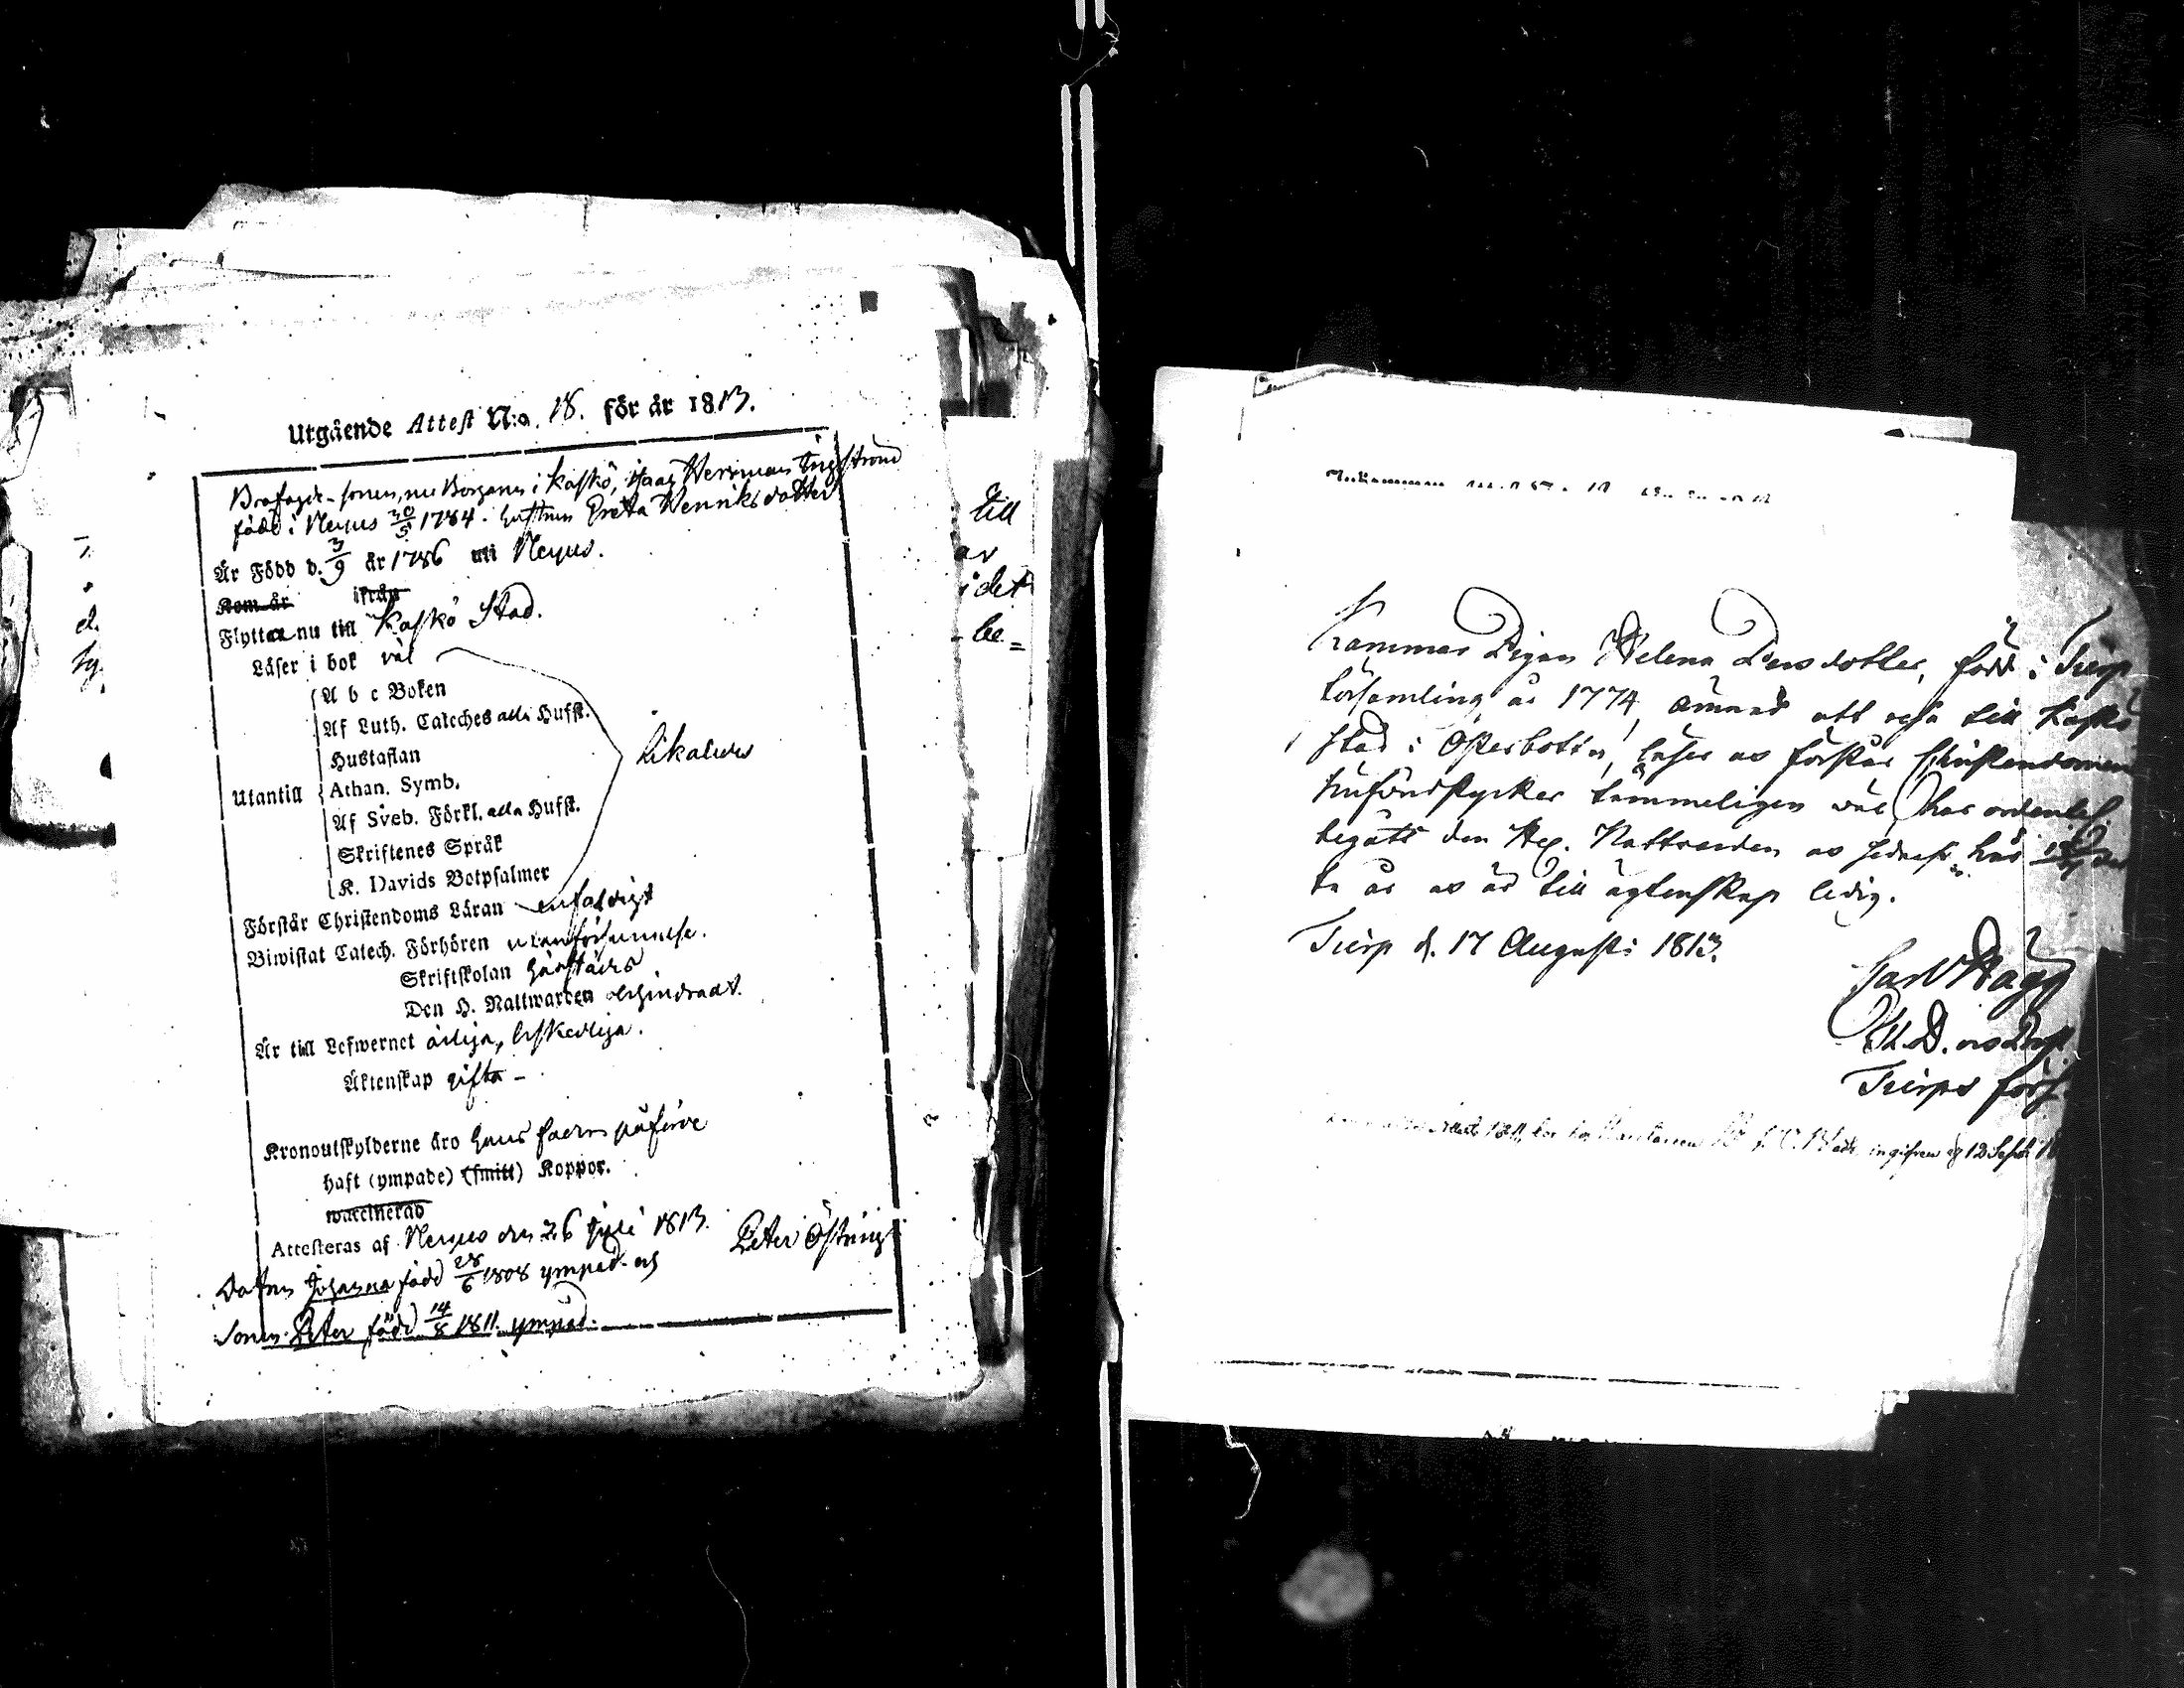 Utgående Attest N:o 18. för år 1813.
sonen, nu Borgaren i Kaskö, Isaac Herrman Engström
född i Nerpes 30/5 1784. hustrun Greta Henriksdotter
Är Född d. 3/9 år 1786 uti Nerpes.
Kom år ifrån
Flyttar nu till Kaskö Stad.
Läser i bok väl
A b c Boken
Af Luth. Cateches alla Hufst.
Hustaflan
Utantill Athan. Symb.
Af Sveb. Förkl. alla Hufst.
Skriftenes Språk
K. Davids Botpsalmer
likaledes
Förstår Christendoms Läran enfaldigt
Biwistat Catech. Förhören utan försummelse.
Skriftskolan härstädes
Den H. Nattwarden ohindradt.
Är till Lefwernet ärliga, beskedliga.
Äktenskap gifta -
Kronoutskylderne äro hans faders påförde
haft (ympade) (smitt) Koppor.
waccinerad
Attesteras af Nerpes den 26 Juli 1813. Peter Östring
Dottren Johanna född 28/6 1808 ympad och
Sonen Peter född 14/8 1811. ympad.
till
av
i det
be=
Kammar Pigan Helena Persdotter, född i Tierp
församling år 1774, ämnar att resa till Kaskö
stad i Österbotten, läser os förstår Christendomens
hufvudstycker tämmeligen väl, har ordentl.
begått den Hel. Nattvarden os sednast här
te år os är till ägtenskap ledig.
Tierp d. 17 Augusti 1813.
Carl Hagg
Tierps förs.
ingifven d 12 Sept